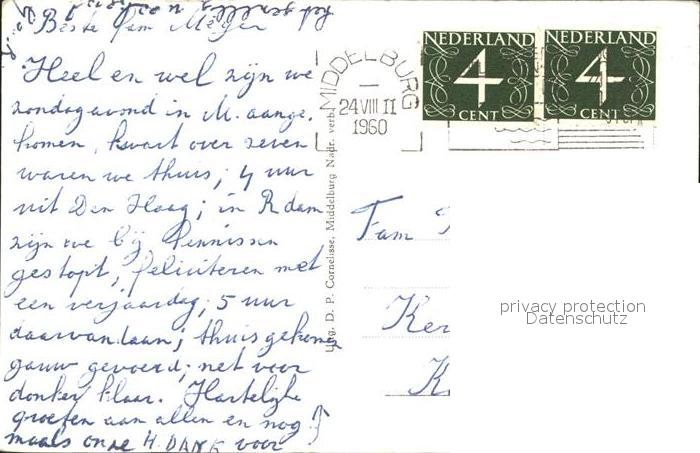 Beste fam Meyer
Heel en wel zijn we
zondagavond in M. aange-
komen, kwart over zeven
waren we thuis; 4 uur
uit Den Haag; in R dam
zijn we bij kennissen
gestopt, feliciteren met
een verjaardag; 5 uur
daarvandaan; thuis gekomen
gauw gevoerd; net voor
donker klaar. Hartelijke
groeten aan allen en nog-
maals onze H. DANK voor
MIDDELBURG
24 VIII 11
1960
NEDERLAND
4
CENT
NEDERLAND
4
CENT
Uitg. D. P. Cornelisse, Middelburg Nadr. verb.
Fam
Ker
K
privacy protection
Datenschutz